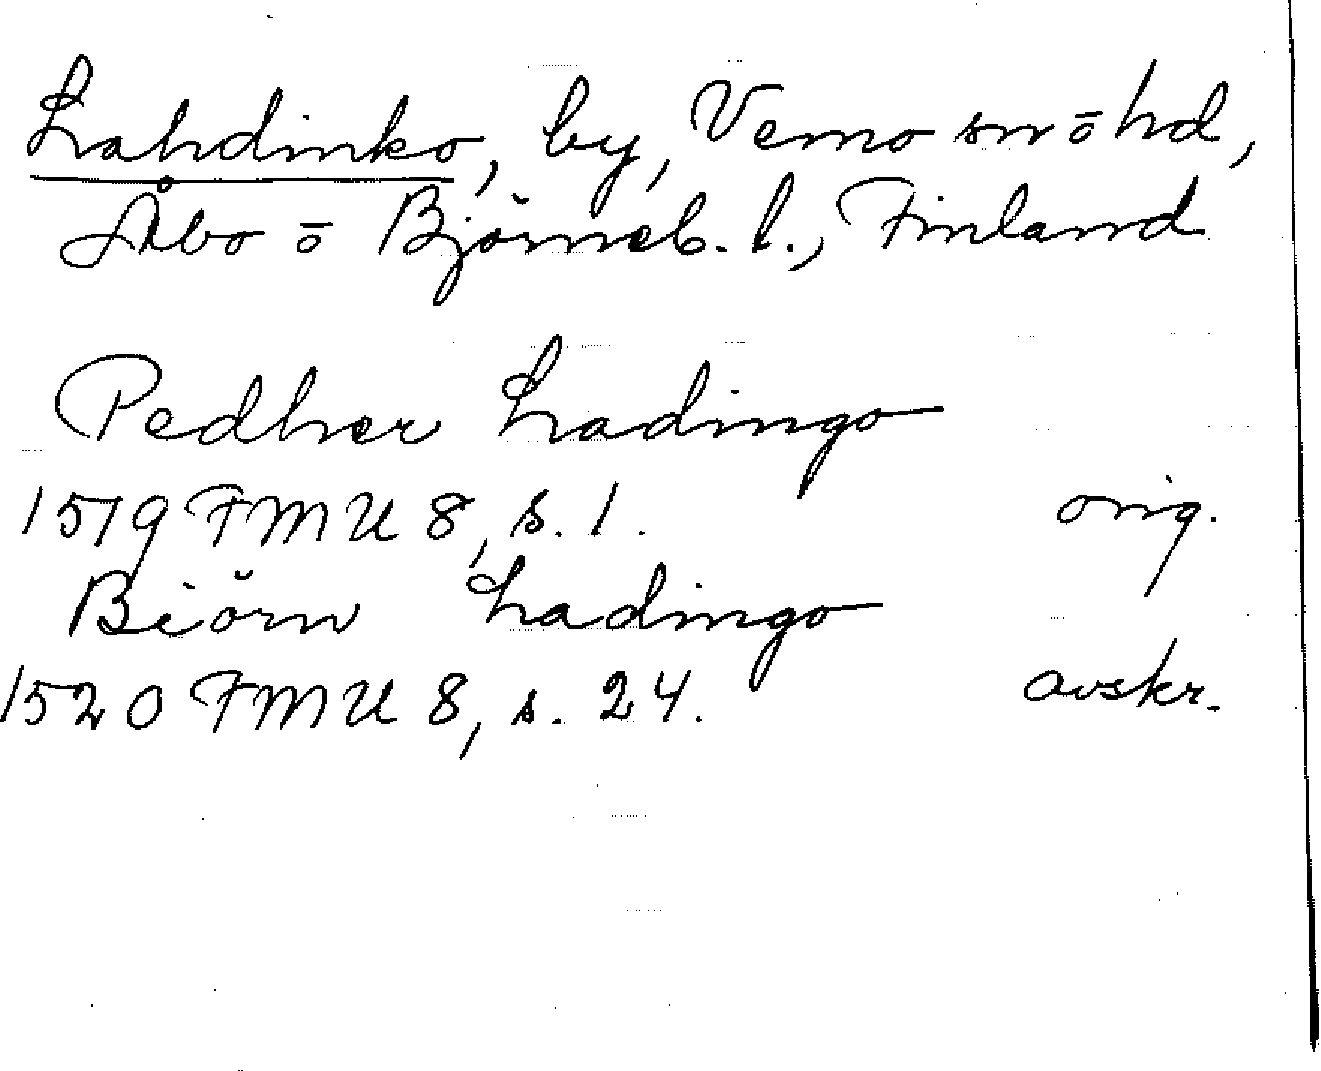 Lahdinko, by, Vemo sn ō hd,
Åbo ō Björneb. l., Finland
Pedher Ladingo
1519 FMU 8, s. 1. orig.
Biörn Ladingo
1520 FMU 8, s. 24. avskr.